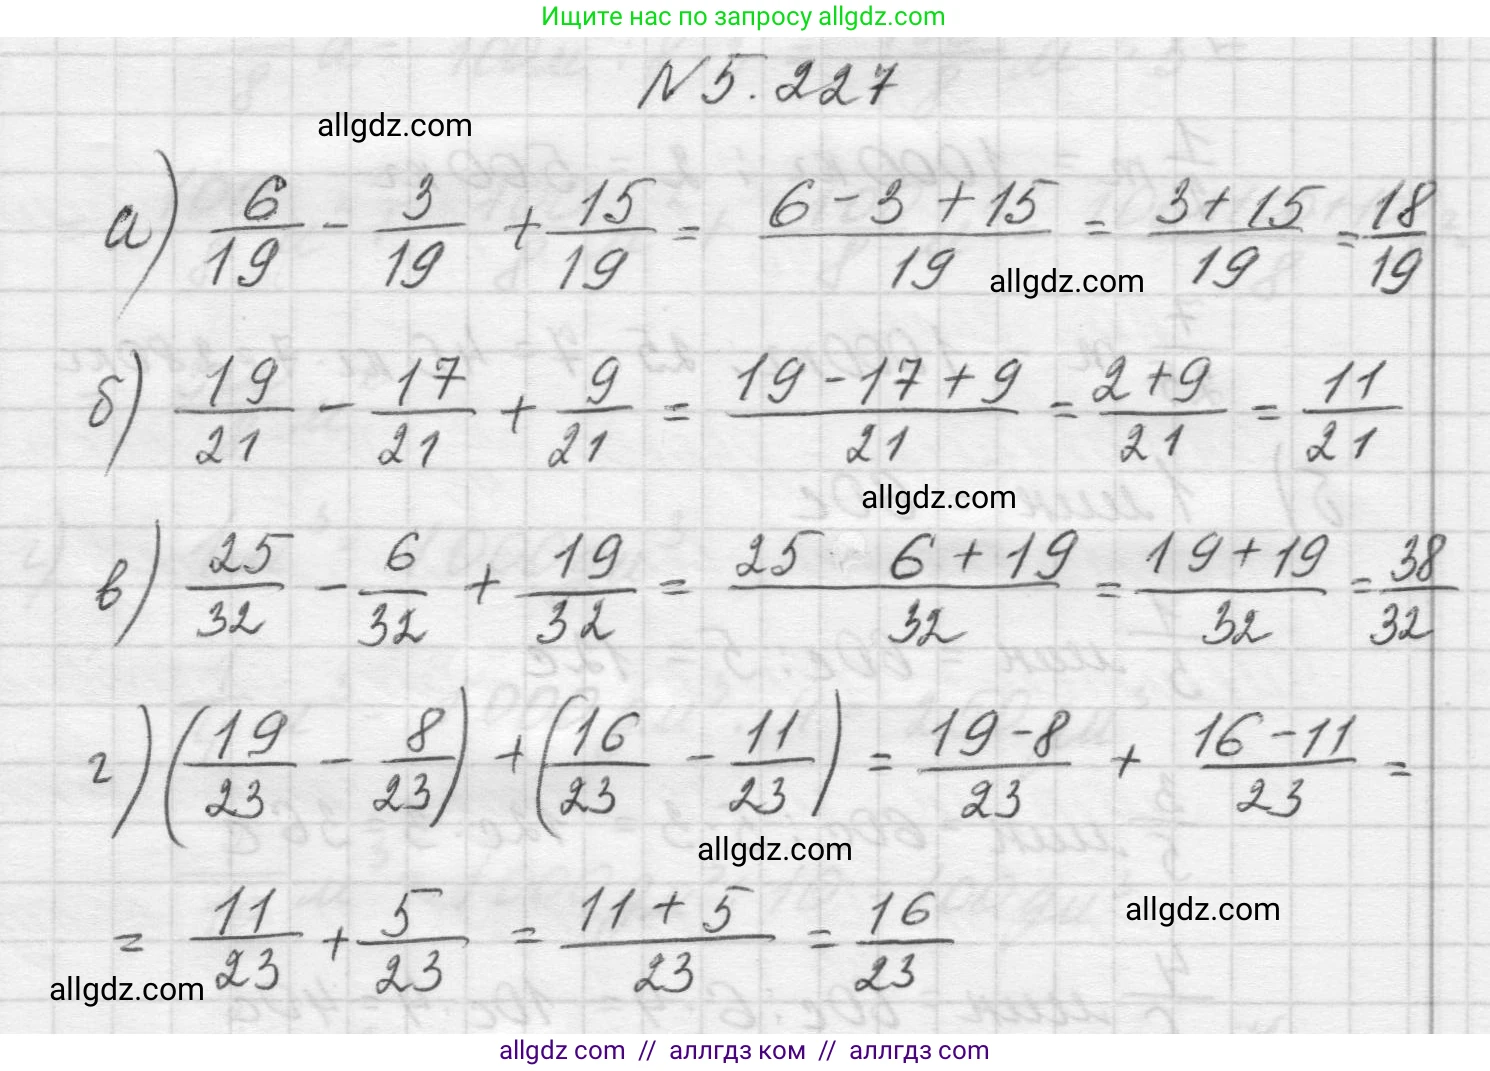 Ищите нас по запросу allgdz.com
N 5.227
allgdz.com
а) 6/19 - 3/19 + 15/19 = (6 - 3 + 15)/19 = (3 + 15)/19 = 18/19
allgdz.com
б) 19/21 - 17/21 + 9/21 = (19 - 17 + 9)/21 = (2 + 9)/21 = 11/21
allgdz.com
в) 25/32 - 6/32 + 19/32 = (25 6 + 19)/32 = (19 + 19)/32 = 38/32
г) (19/23 - 8/23) + (16/23 - 11/23) = (19 - 8)/23 + (16 - 11)/23 =
allgdz.com
= 11/23 + 5/23 = (11 + 5)/23 = 16/23
allgdz.com
allgdz.com
allgdz com // аллгдз ком // аллгдз com